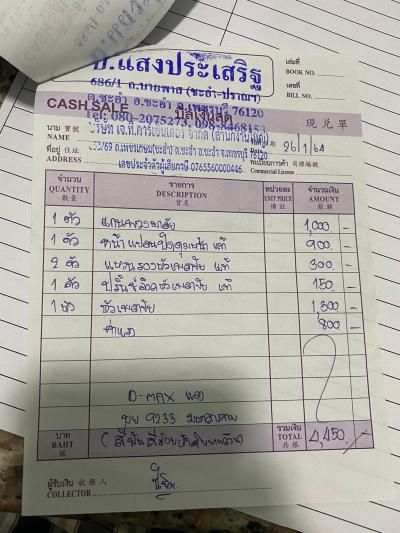 อ.แสงประเสริฐ
686/1 ถ.บายพาส (ชะอำ-ปราณฯ)
ต.ชะอำ อ.ชะอำ จ.เพชรบุรี 76120
Tel: 080-2075273, 098-
เล่มที่
BOOK NO.
เลขที่
BILL NO.
CASH SALE บิลเงินสด 現兌單
นาม 寶號
NAME
บริษัท เจ.ที.คาร์เซ็นเตอร์ จำกัด (สำนักงานใหญ่)
26/1/64
ที่อยู่ 住址
ADDRESS
ถ.เพชรเกษม ต.ชะอำ อ.ชะอำ จ.เพชรบุรี 76120
เลขประจำตัวผู้เสียภาษี 0765560000446
ทะเบียนการค้า 商標編號
Commercial License
จำนวน รายการ หน่วยละ จำนวนเงิน
QUANTITY DESCRIPTION UNIT PRICE AMOUNT
數量 貨名 備註 銀額
1 ตัว 1,000 -
1 ตัว แท้ 900 -
2 ตัว แหวนรองหัวเพลาขับ แท้ 300 -
1 ตัว ปริ้นล็อคหัวเพลาขับ แท้ 150 -
1 หัว หัวเพลาขับ 1,300 -
ค่าแรง 800 -
D-MAX แดง
9233
บาท
BAHT
銖
(สี่พันสี่ร้อยห้าสิบบาทถ้วน)
รวมเงิน
TOTAL
共銀
4,450.-
ผู้รับเงิน 收銀人
COLLECTOR